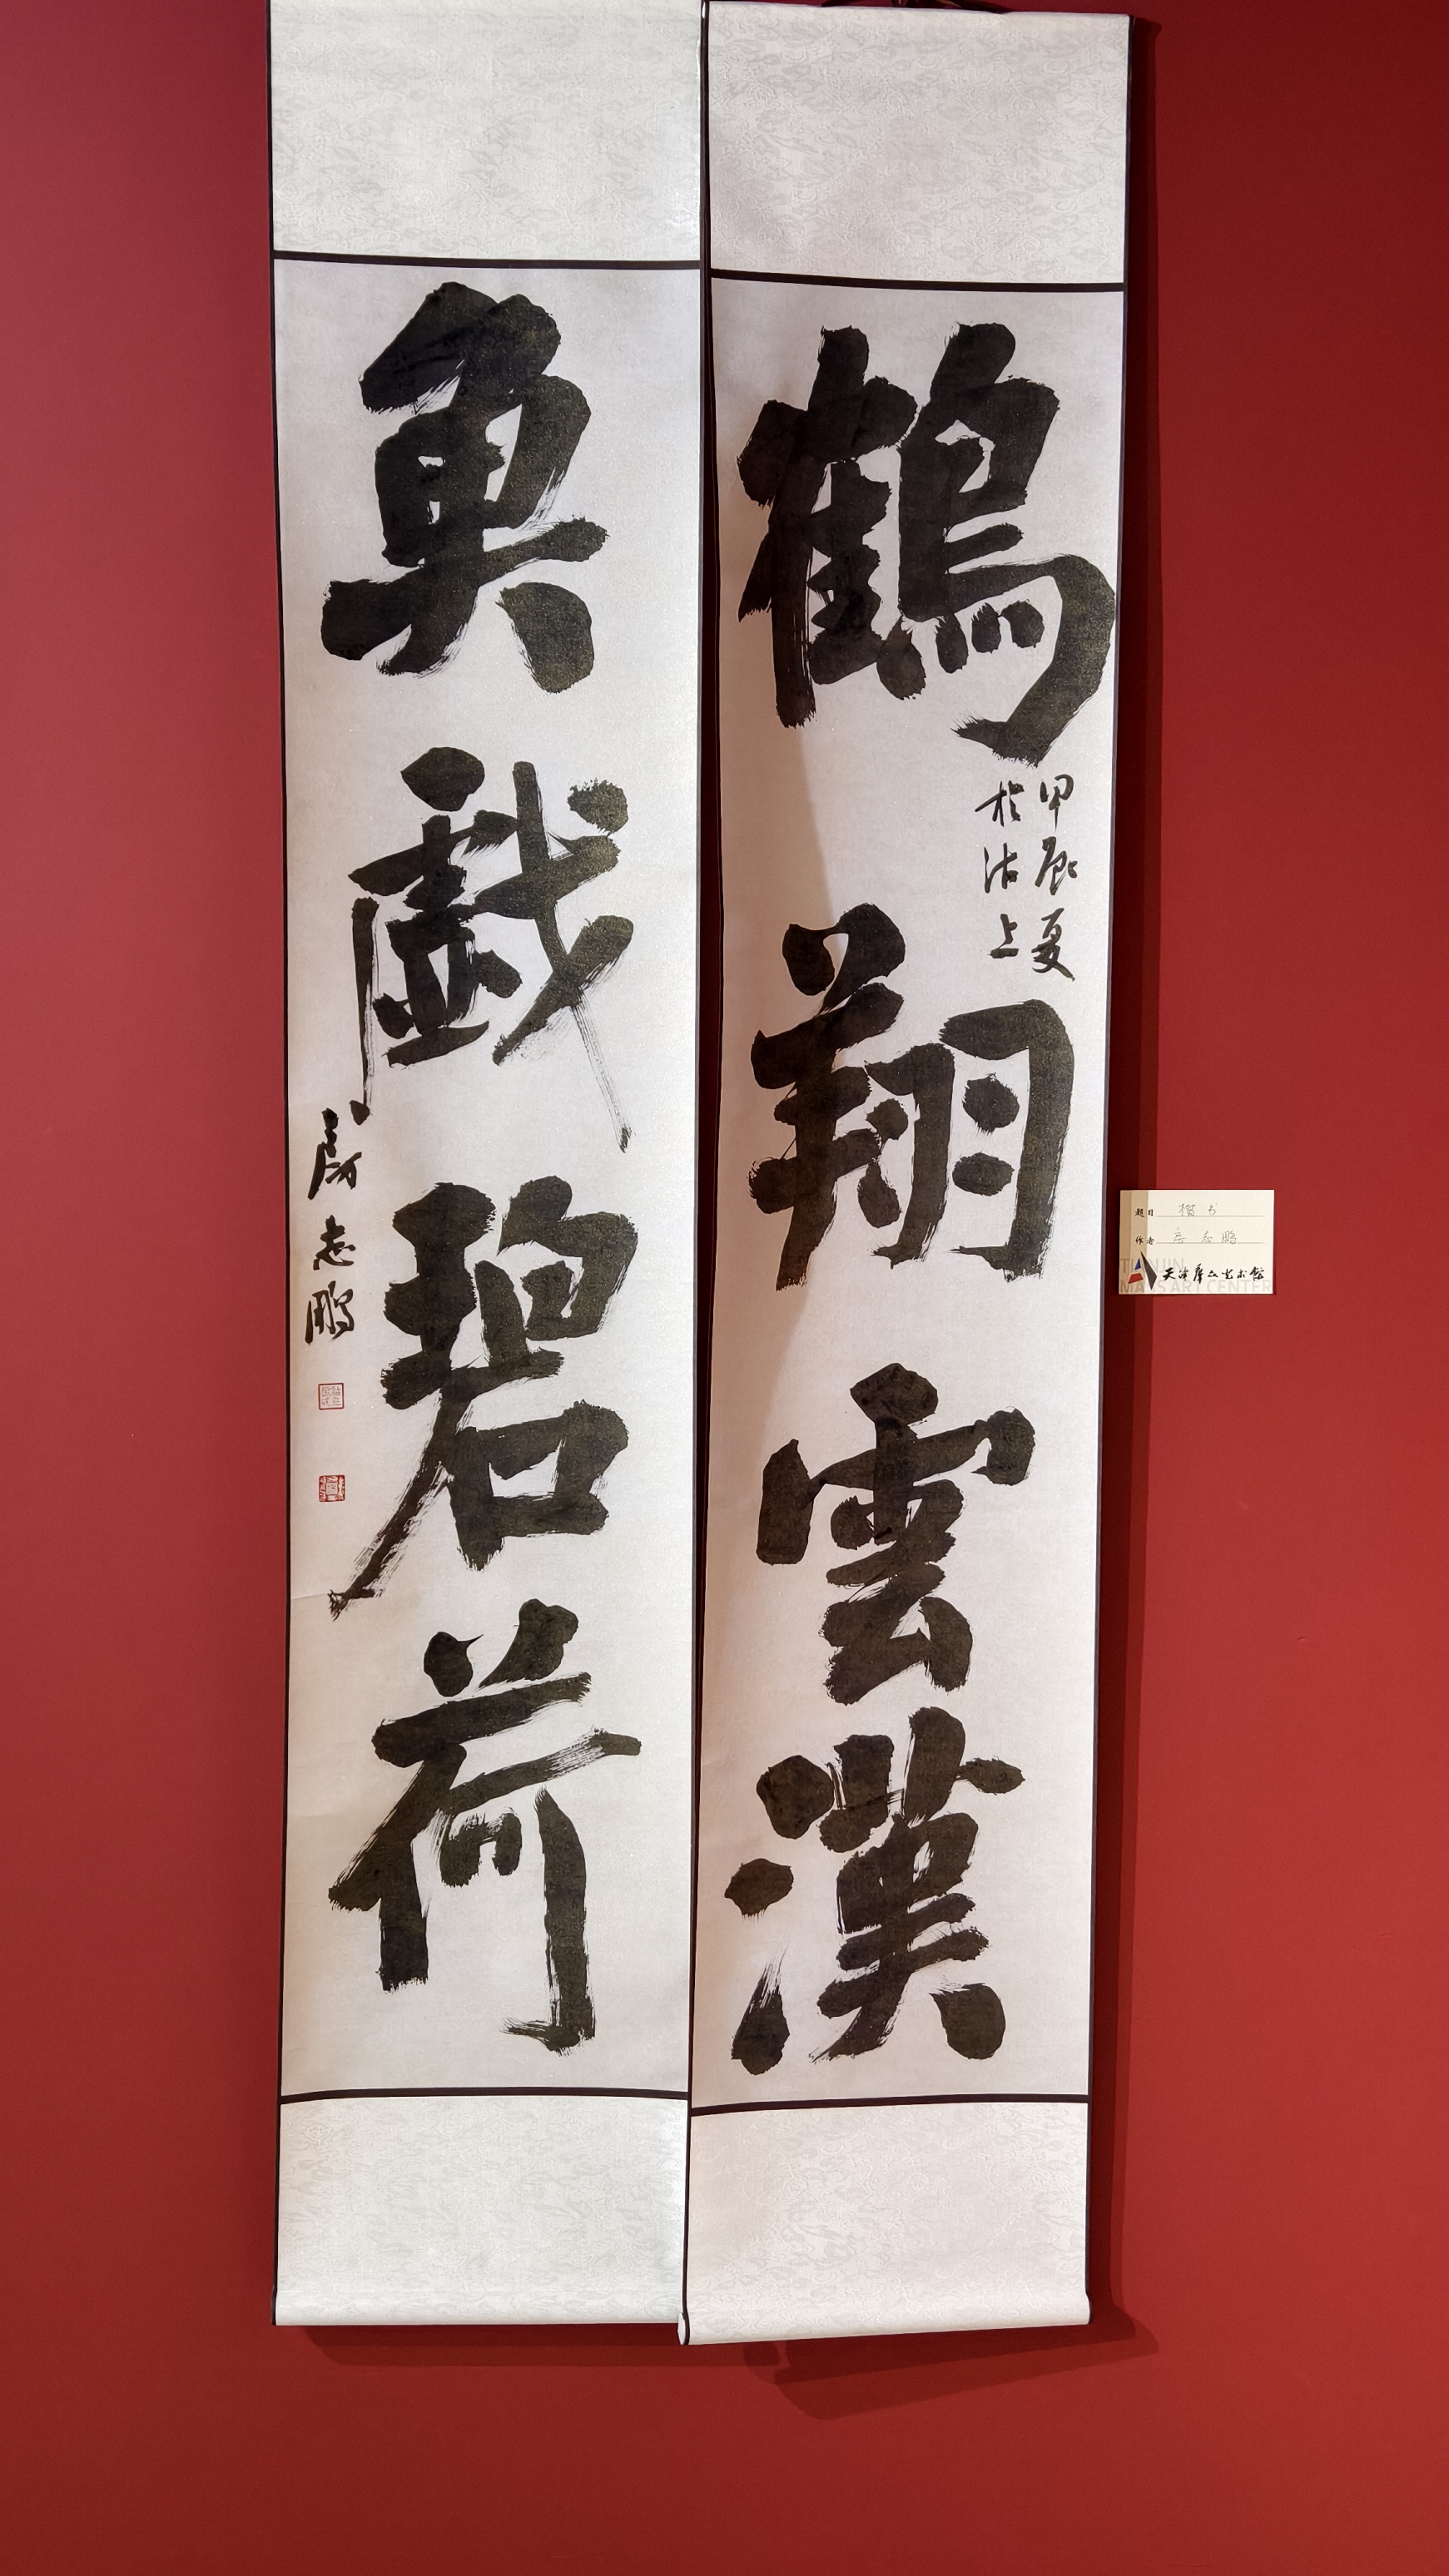 鶴翔雲漢
甲辰夏
於沽上
魚戯碧荷
房志鵬
题目 楷书
作者 房志鹏
天津群众艺术馆
TIANJIN
MASS ART CENTER